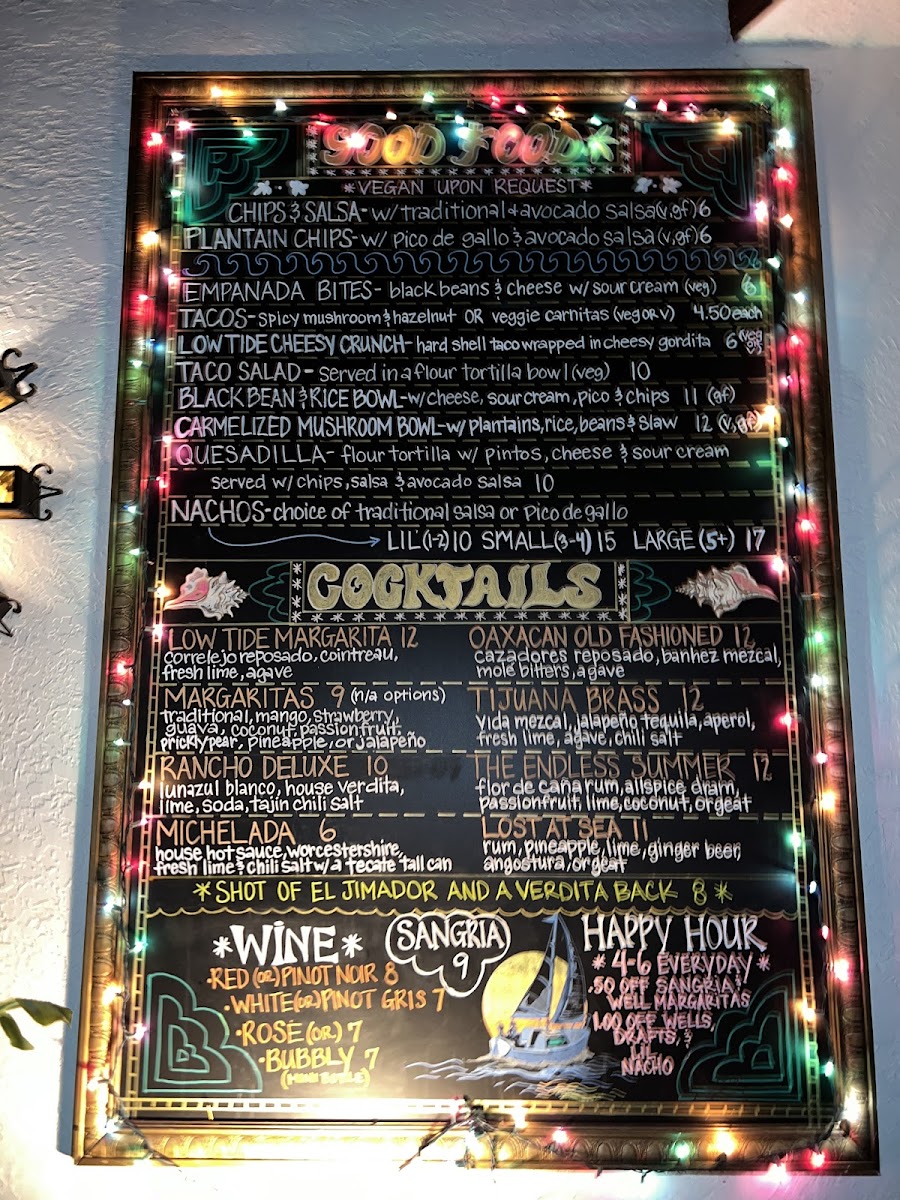 GOOD FOOD
*VEGAN UPON REQUEST*
CHIPS & SALSA- w/ traditional & avocado salsa (v,gf) 6
PLANTAIN CHIPS- w/ pico de gallo & avocado salsa (v,gf) 6
EMPANADA BITES- black beans & cheese w/ sour cream (veg) 6
TACOS- spicy mushroom & hazelnut OR veggie carnitas (veg or v) 4.50 each
LOW TIDE CHEESY CRUNCH- hard shell taco wrapped in cheesy gordita 6 (veg or v)
TACO SALAD- served in a flour tortilla bowl (veg) 10
BLACK BEAN & RICE BOWL- w/ cheese, sour cream, pico & chips 11 (gf)
CARMELIZED MUSHROOM BOWL- w/ plantains, rice, beans & slaw 12 (v,gf)
QUESADILLA- flour tortilla w/ pintos, cheese & sour cream
served w/ chips, salsa & avocado salsa 10
NACHOS- choice of traditional salsa or pico de gallo
LIL (1-2) 10 SMALL (3-4) 15 LARGE (5+) 17
COCKTAILS
LOW TIDE MARGARITA 12
correlejo reposado, cointreau,
fresh lime, agave
MARGARITAS 9 (n/a options)
traditional, mango, strawberry,
guava, coconut, passionfruit,
prickly pear, pineapple, or jalapeño
RANCHO DELUXE 10
lunazul blanco, house verdita,
lime, soda, tajin chili salt
MICHELADA 6
house hot sauce, worcestershire,
fresh lime & chili salt w/ a tecate tall can
OAXACAN OLD FASHIONED 12
cazadores reposado, banhez mezcal,
molé bitters, agave
TIJUANA BRASS 12
vida mezcal, jalapeño tequila, aperol,
fresh lime, agave, chili salt
THE ENDLESS SUMMER 12
flor de caña rum, allspice dram,
passionfruit, lime, coconut, orgeat
LOST AT SEA 11
rum, pineapple, lime, ginger beer,
angostura, orgeat
*SHOT OF EL JIMADOR AND A VERDITA BACK 8*
*WINE*
·RED (OR) PINOT NOIR 8
·WHITE (OR) PINOT GRIS 7
·ROSÉ (OR) 7
·BUBBLY 7
(MINI BOTTLE)
SANGRIA
9
HAPPY HOUR
*4-6 EVERYDAY*
·.50 OFF SANGRIA &
WELL MARGARITAS
1.00 OFF WELLS,
DRAFTS, &
LIL
NACHO